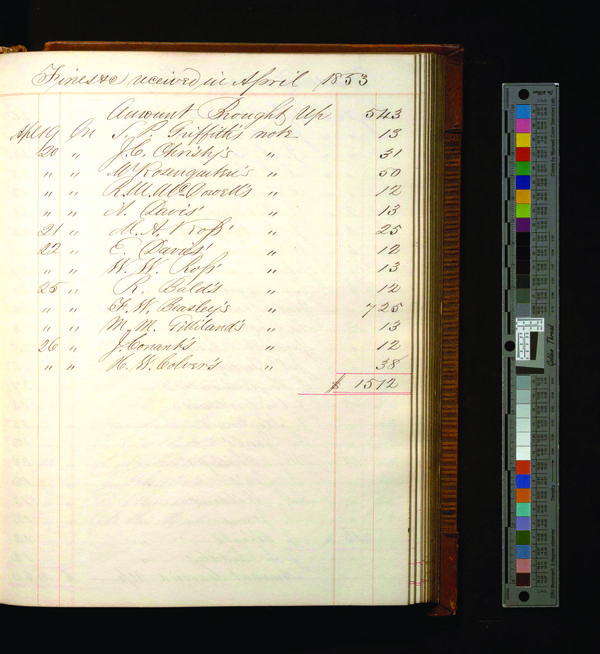 Fines &c received in April 1853
Amount Brought Up 543
Apl 19 On S. P. Griffith's note 13
20 〃 J. C. Christy's 〃 31
〃 〃 Mc Rosengarten's 〃 50
〃 〃 R. M. Mc Dowell's 〃 12
〃 〃 A. Davis' 〃 13
21 〃 M. A. Ross' 〃 25
22 〃 E. Davis' 〃 12
〃 〃 W. W. Ross' 〃 13
25 〃 R. Bald's 〃 12
〃 〃 F. W. Beasley's 〃 725
〃 〃 M. M. Gilliland's 〃 13
26 〃 J. Conank's 〃 12
〃 〃 H. W. Colver's 〃 38
$ 1512
Golden Thread